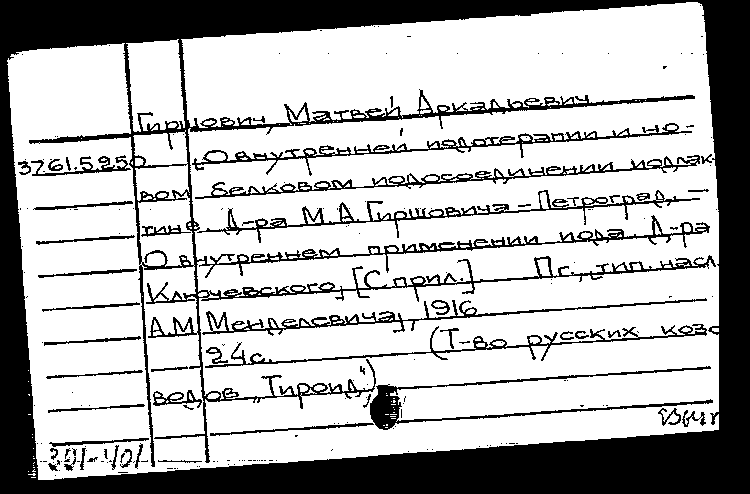 Гиршович, Матвей Аркадьевич
37.61.5.250 [О внутренней иодотерапии и но-
вом белковом иодосоединении иодлак-
тине. Д-ра М.А. Гиршовича – Петроград. –
О внутреннем применении иода. Д-ра
Ключевского]. [С прил.]. Пг., [тип. насл.
А.М. Менделевича], 1916
24 с. (Т-во русских козо
водов "Тироид")
391-401